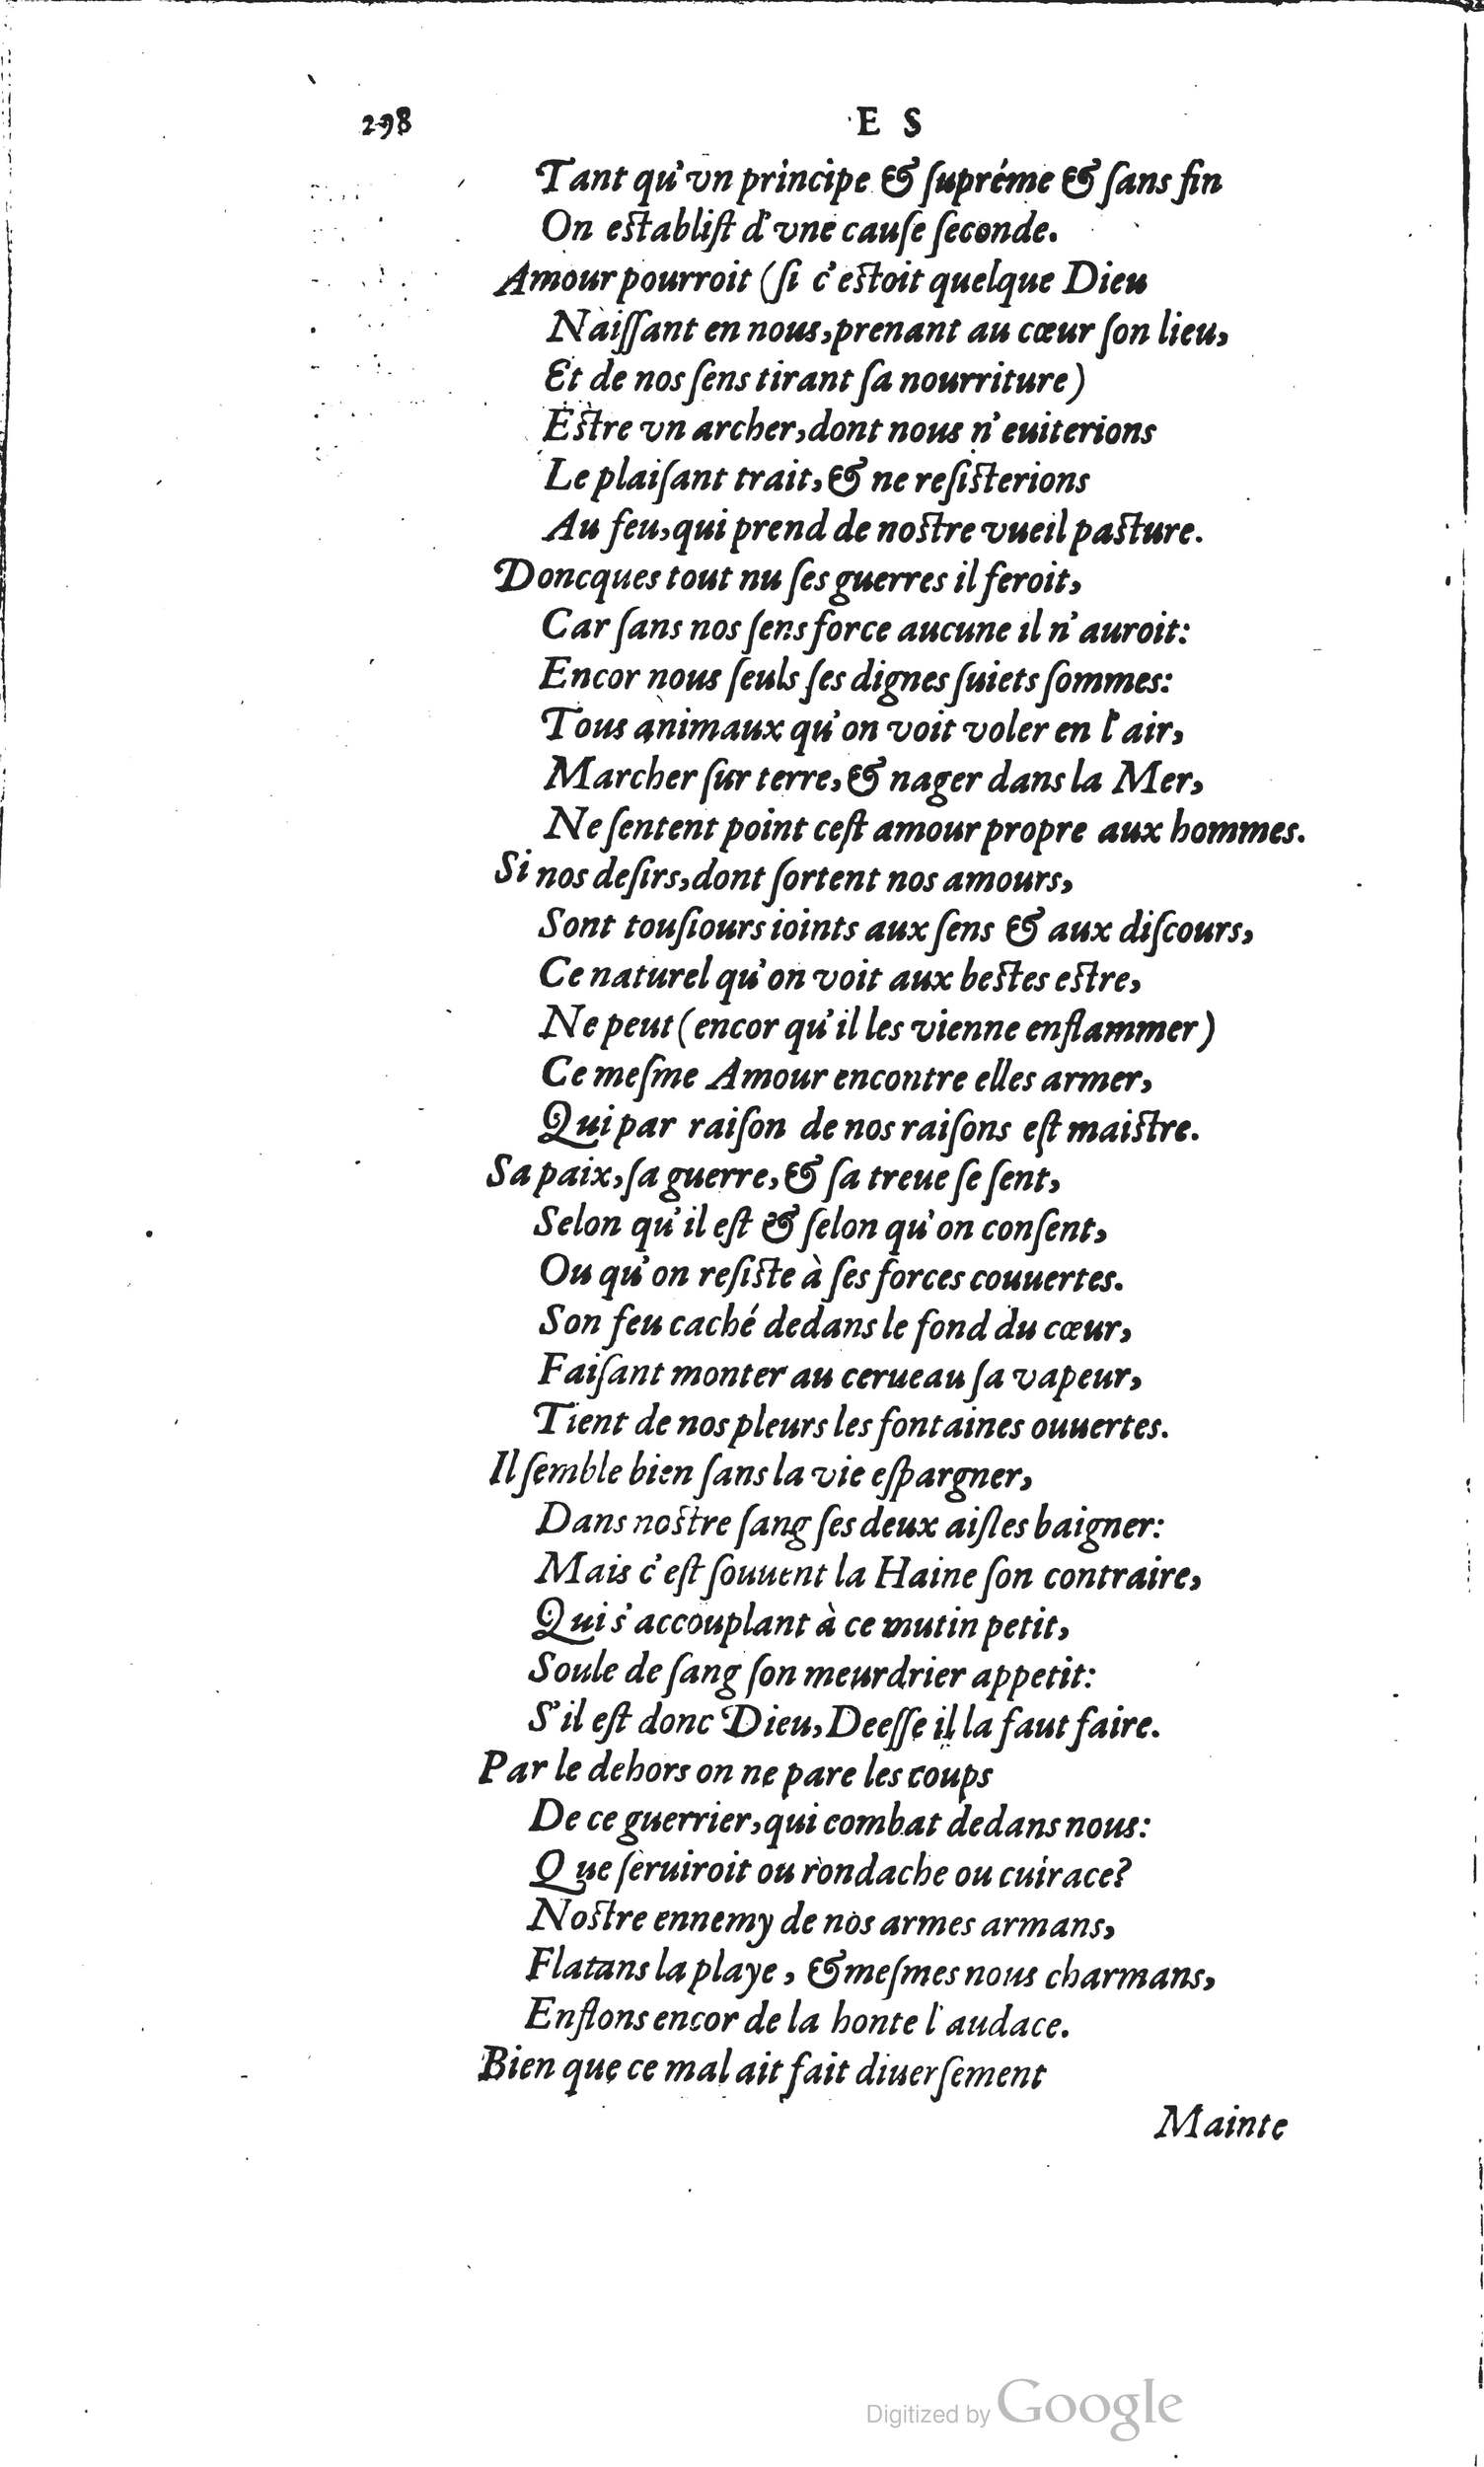 298 E S
Tant qu'vn principe & ſupréme & ſans fin
On establiſt d'vne cauſe ſeconde.
Amour pourroit (ſi c'estoit quelque Dieu
Naiſſant en nous, prenant au cœur ſon lieu,
Et de nos ſens tirant ſa nourriture)
Estre vn archer, dont nous n'euiterions
Le plaiſant trait, & ne reſisterions
Au feu, qui prend de nostre vueil paſture.
Doncques tout nu ſes guerres il feroit,
Car ſans nos ſens force aucune il n'auroit:
Encor nous ſeuls ſes dignes ſuiets ſommes:
Tous animaux qu'on voit voler en l'air,
Marcher ſur terre, & nager dans la Mer,
Ne ſentent point ceſt amour propre aux hommes.
Si nos deſirs, dont ſortent nos amours,
Sont touſiours ioints aux ſens & aux diſcours,
Ce naturel qu'on voit aux bestes estre,
Ne peut (encor qu'il les vienne enflammer)
Ce meſme Amour encontre elles armer,
Qui par raiſon de nos raiſons eſt maistre.
Sa paix, ſa guerre, & ſa treue ſe ſent,
Selon qu'il eſt & ſelon qu'on conſent,
Ou qu'on reſiste à ſes forces couuertes.
Son feu caché dedans le fond du cœur,
Faiſant monter au cerueau ſa vapeur,
Tient de nos pleurs les fontaines ouuertes.
Il ſemble bien ſans la vie eſpargner,
Dans nostre ſang ſes deux aiſles baigner:
Mais c'eſt ſouuent la Haine ſon contraire,
Qui s'accouplant à ce mutin petit,
Soule de ſang ſon meurdrier appetit:
S'il eſt donc Dieu, Deeſſe il la faut faire.
Par le dehors on ne pare les coups
De ce guerrier, qui combat dedans nous:
Que ſeruiroit ou rondache ou cuirace?
Nostre ennemy de nos armes armans,
Flatans la playe, & meſmes nous charmans,
Enflons encor de la honte l'audace.
Bien que ce mal ait fait diuerſement
Mainte
Digitized by Google